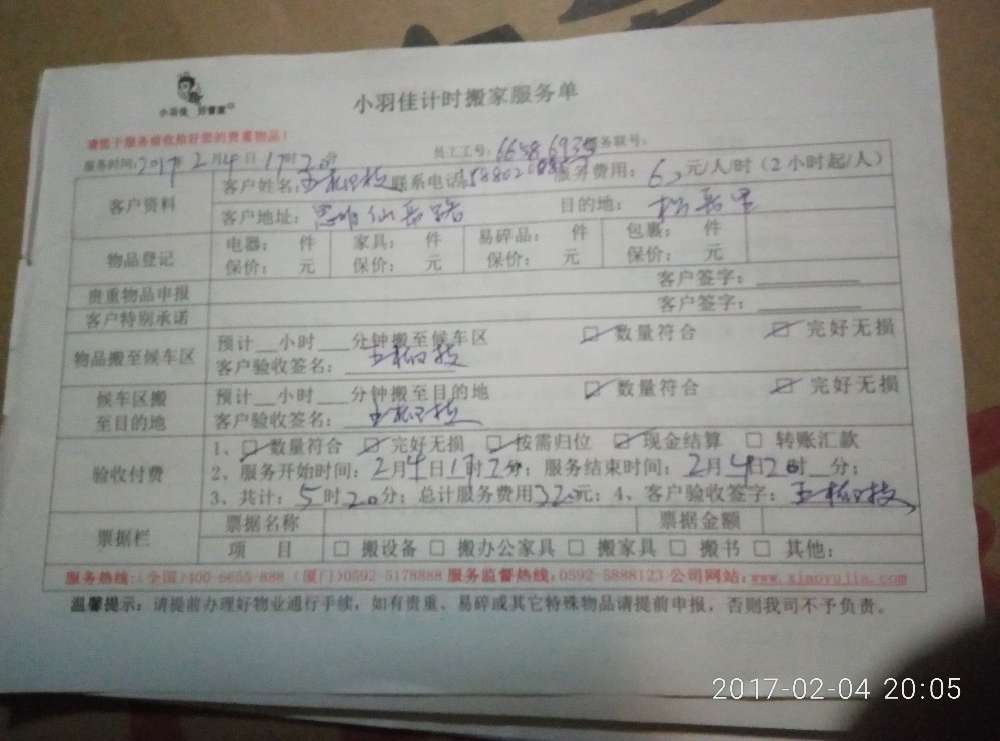 小羽佳 好管家
小羽佳计时搬家服务单
请您于服务前收拾好您的贵重物品！
服务时间：2017年2月4日17时20分 员工工号：6658 6935 务联号：
客户资料 客户姓名：王 联系电话：58802 服务费用：60元/人/时（2小时起/人）
客户地址：思明仙岳路 目的地：松岳里
物品登记 电器： 件 家具： 件 易碎品： 件 包裹： 件
保价： 元 保价： 元 保价： 元 保价： 元
贵重物品申报 客户签字：
客户特别承诺 客户签字：
物品搬至候车区 预计__小时___分钟搬至候车区 ☑数量符合 ☑完好无损
客户验收签名：王
候车区搬至目的地 预计__小时___分钟搬至目的地 ☑数量符合 ☑完好无损
客户验收签名：王
验收付费 1、☑数量符合 ☑完好无损 ☑按需归位 ☑现金结算 □转账汇款
2、服务开始时间：2月4日17时2分；服务结束时间：2月4日20时__分；
3、共计：5时20分；总计服务费用320元；4、客户验收签字：王
票据栏 票据名称 票据金额
项 目 □搬设备 □搬办公家具 □搬家具 □搬书 □其他：
服务热线：（全国）400-6655-888（厦门）0592-5178888 服务监督热线：0592-5888123 公司网站：www.xiaoyujia.com
温馨提示：请提前办理好物业通行手续，如有贵重、易碎或其它特殊物品请提前申报，否则我司不予负责。
2017-02-04 20:05